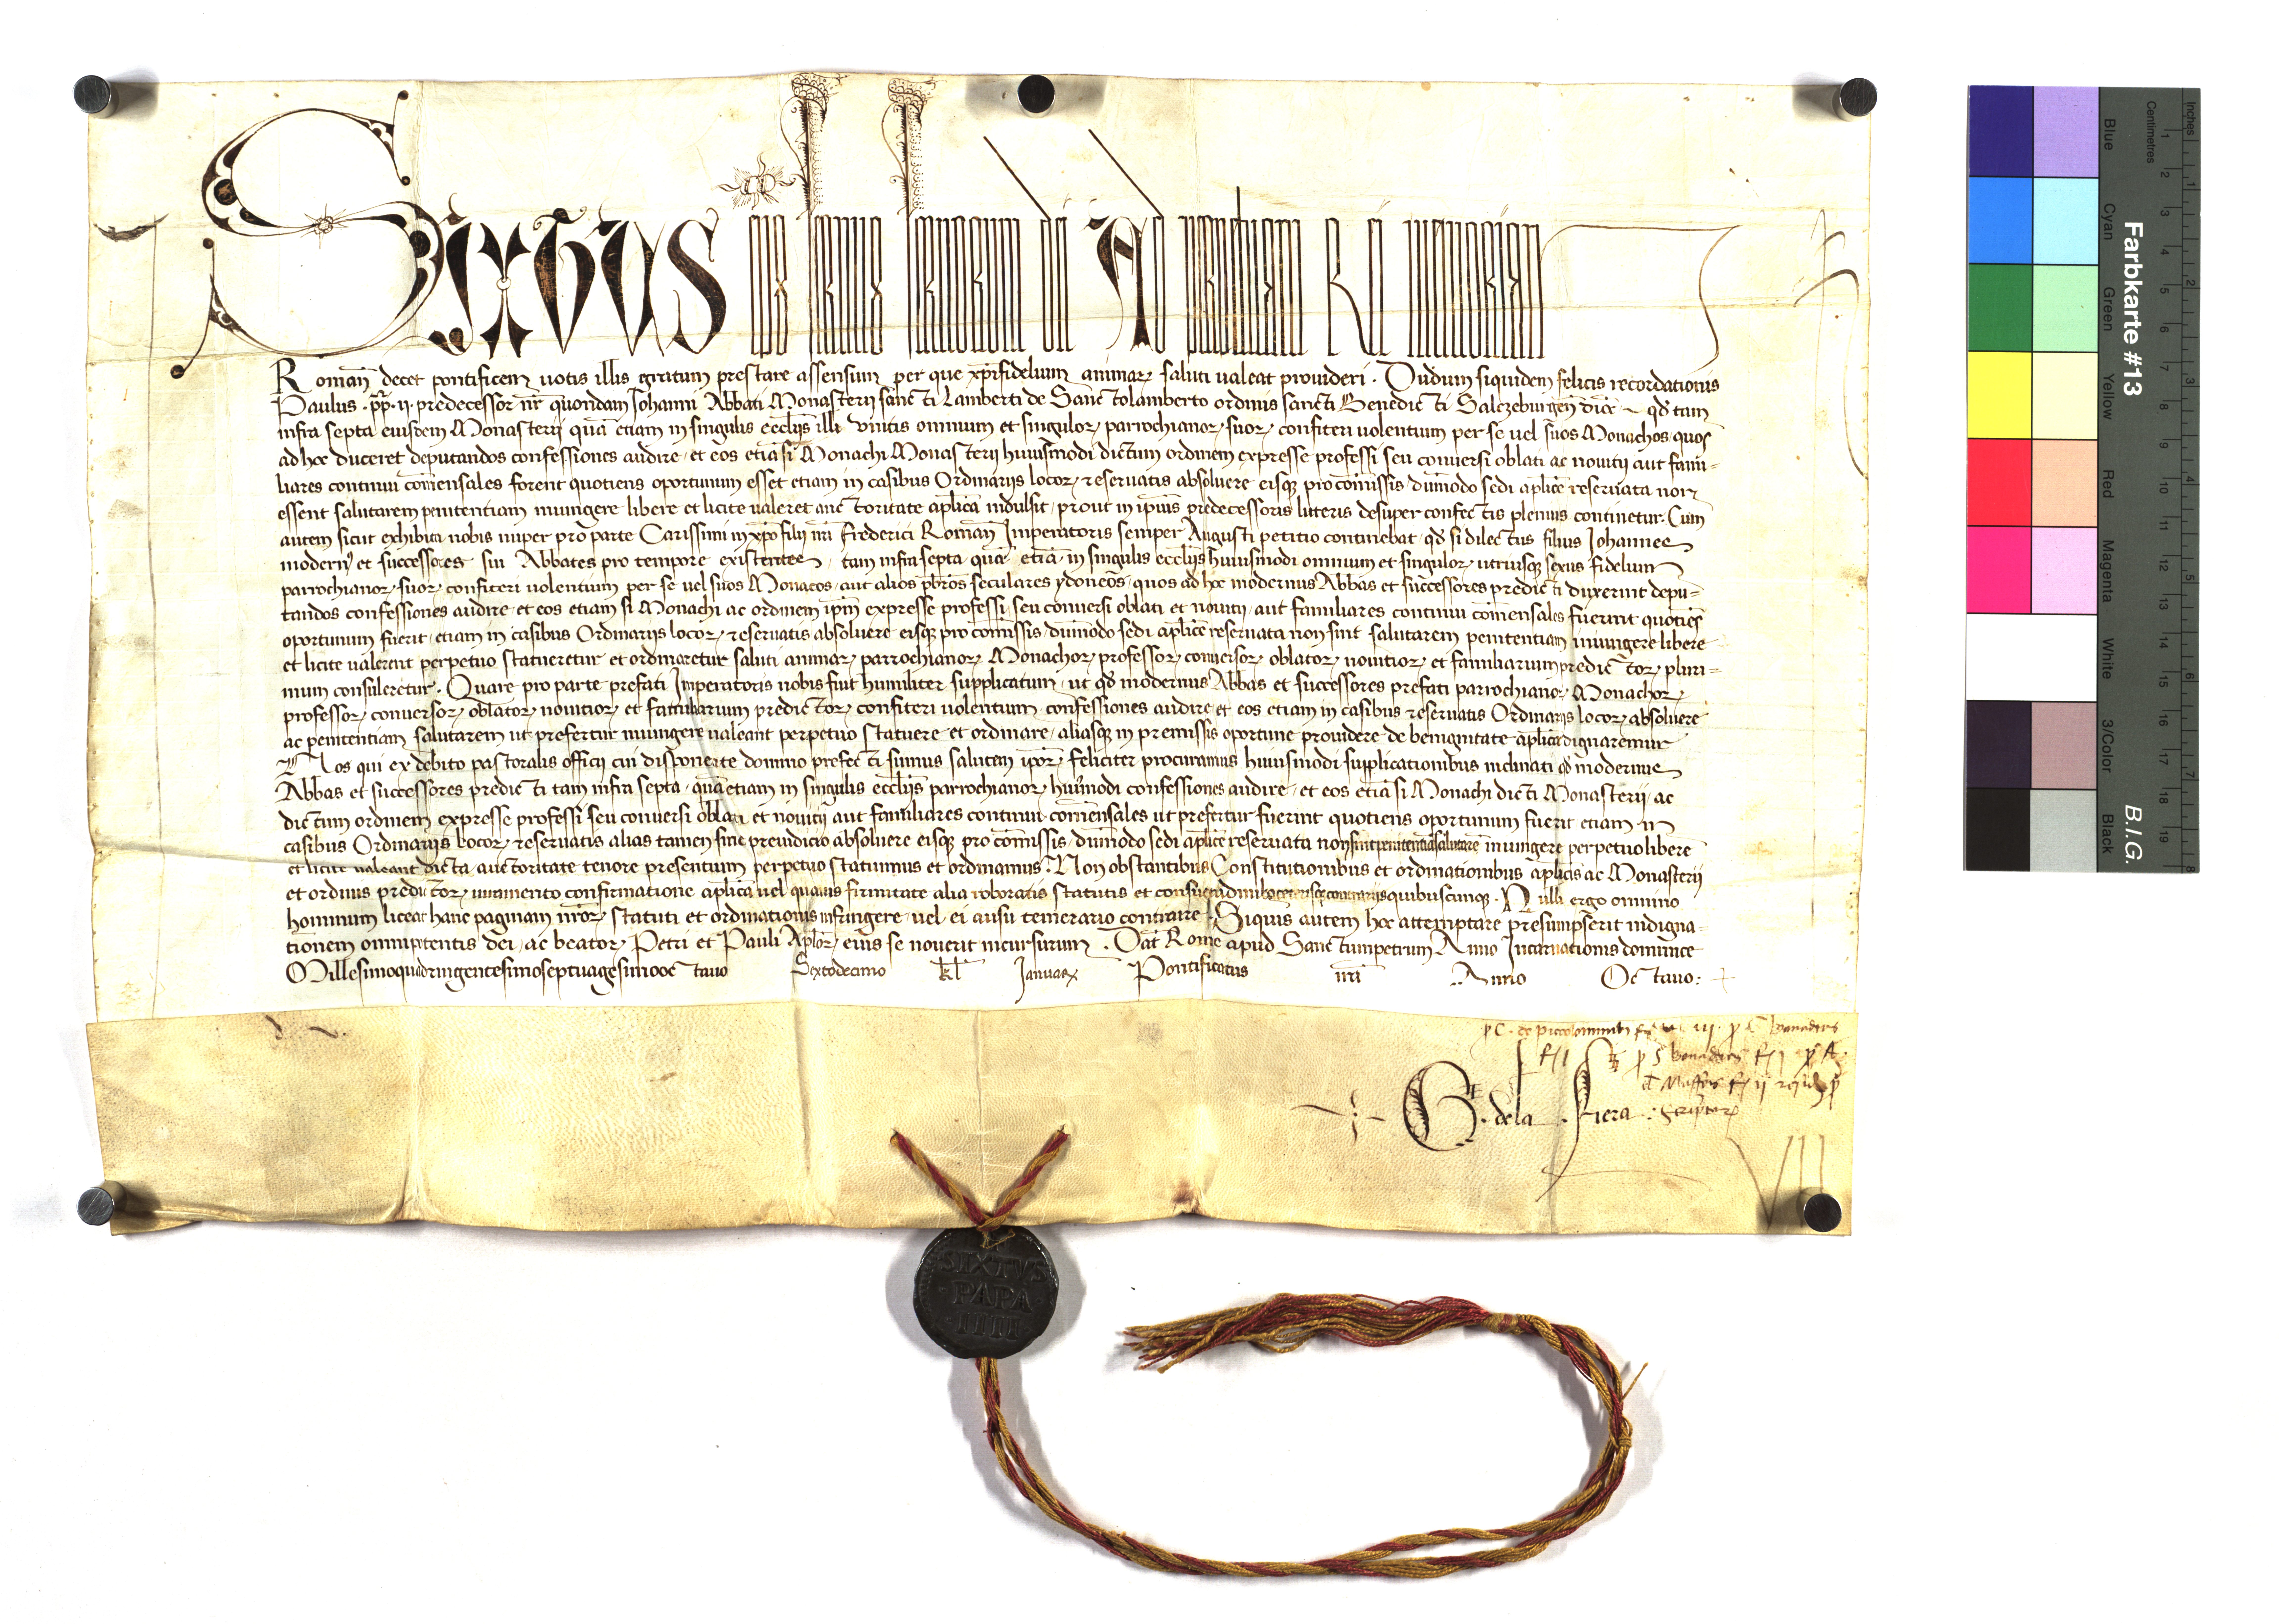 Sixtus eps seruus seruorum dei Ad perpetuam Rei memoriam
Romanū decet pontificem uotis illis gratum prestare assensum per que xp̄ifidelium animaꝝ saluti ualeat prouideri. Dudum siquidem felicis recordationis
Paulus .pp̄.ii. predecessor nr̄ quondam Johanni Abbati Monasterii sancti Lamberti de Sanctolamberto ordinis sancti Benedicti Salczeburgen̄ dioc̄ qđ tam
infra septa eiusdem Monasterii quā etiam in singulis eccl̄iis illi vnitis omnium et singuloꝝ parrochianoꝝ suoꝝ confiteri uolentium per se uel suos Monachos quos
ad hoc duceret deputandos confessiones audire et eos etiā si Monachi Monasterii huiusmodi dictum ordinem expresse professi seu conuersi oblati ac nouitii aut fami-
liares continui com̄ensales forent quotiens oportunum esset etiam in casibus Ordinariis locoꝝ reseruatis absoluere eisqꝫ pro com̄issis dum̄odo sedi aplice reseruata non
essent salutarem penitentiam iniungere libere et licite ualeret auctoritate aplica indulsit prout in ipius predecessoris litteris desuper confectis plenius continetur. Cum
autem sicut exhibita nobis nuper pro parte Carissimi in xp̄o filii nr̄i Frederici Romanoꝝ Imperatoris semper Augusti petitio continebat qđ si dilectus filius Johannes
modern⁹ et successores sui Abbates pro tempore existentes tam infra septa quā etiā in singulis eccl̄iis huiusmodi omnium et singuloꝝ utriusqꝫ sexus fidelium
parrochianoꝝ suoꝝ confiteri uolentium per se uel suos Monacos aut alios pb̄ros seculares ydoneos quos ad hoc modernus Abbas et successores predicti duxerint depu-
tandos confessiones audire et eos etiam si Monachi ac ordinem ipm̄ expresse professi seu conuersi oblati et nouitii aut familiares continui com̄ensales fuerint quotiēs
oportunum fuerit etiam in casibus Ordinariis locoꝝ reseruatis absoluere eisqꝫ pro com̄issis dum̄odo sedi aplice reseruata non sint salutarem penitentiam iniungere libere
et licite ualerent perpetuo statueretur et ordinaretur saluti animaꝝ parrochianoꝝ Monachoꝝ professoꝝ conuersoꝝ oblatoꝝ nouitioꝝ et familiarium predictoꝝ pluri-
mum consuleretur. Quare pro parte prefati Imperatoris nobis fuit humiliter supplicatum ut qđ modernus Abbas et successores prefati parrochianoꝝ Monachoꝝ
professoꝝ conuersoꝝ oblatoꝝ nouitioꝝ et familiarium predictoꝝ confiteri uolentium confessiones audire et eos etiam in casibus reseruatis Ordinariis locoꝝ absoluere
ac penitentiam salutarem ut prefertur iniungere ualeant perpetuo statuere et ordinare aliasqꝫ in premissis oportune prouidere de benignitate aplica dignaremur
Nos qui ex debito pastoralis officii cui disponente domino prefecti sumus salutem ipoꝝ feliciter procuramus huiusmodi supplicationibus inclinati qđ modernus
Abbas et successores predicti tam infra septa quā etiam in singulis eccl̄iis parrochianoꝝ hui⁹modi confessiones audire et eos etiā si Monachi dicti Monasterii ac
dictum ordinem expresse professi seu conuersi oblati et nouitii aut familiares continui com̄ensales ut prefertur fuerint quotiens oportunum fuerit etiam in
casibus Ordinariis locoꝝ reseruatis alias tamen sine preiudicio absoluere eisqꝫ pro com̄issis dum̄odo sedi aplice reseruata non sint penitentiā salutarē iniungere perpetuo libere
et licite ualeant dicta auctoritate tenore presentium perpetuo statuimus et ordinamus. Non obstantibus Constitutionibus et ordinationibus aplicis ac Monasterii
et ordinis predictoꝝ iuramento confirmatione aplica uel quauis firmitate alia roboratis statutis et consuetudinibus ceterisqꝫ contrariis quibuscunqꝫ. Nulli ergo omnino
hominum liceat hanc paginam nr̄oꝝ statuti et ordinationis infringere uel ei ausu temerario contraire. Siquis autem hoc attemptare presumpserit indigna-
tionem omnipotentis dei ac beatoꝝ Petri et Pauli Aploꝝ eius se nouerit incursurum. Dat̄ Rome apud Sanctumpetrum Anno Incarnationis dominice
Millesimoquadringentesimoseptuagesimooctauo Sextodecimo kl̄ Januaꝝ Pontificatus nr̄i Anno Octauo:
G. dela Fiera: Scriptor
VII
SIXTVS
PAPA
IIII
Farbkarte #13 B.I.G.
Inches 1 2 3 4 5 6 7 8
Centimetres 1 2 3 4 5 6 7 8 9 10 11 12 13 14 15 16 17 18 19
Blue Cyan Green Yellow Red Magenta White 3/Color Black